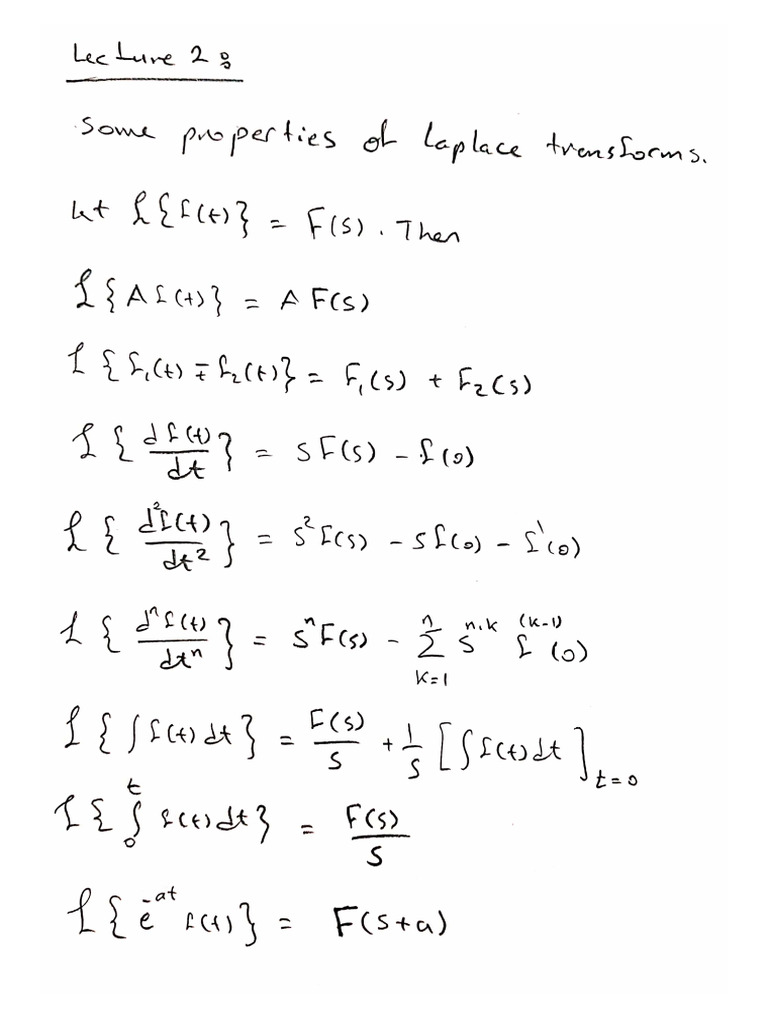 Lecture 2:
Some properties of Laplace transforms.
let ℒ{f(t)} = F(s). Then
ℒ{A f(t)} = A F(s)
ℒ{f₁(t) ∓ f₂(t)} = F₁(s) + F₂(s)
ℒ{df(t)/dt} = sF(s) − f(0)
ℒ{d²f(t)/dt²} = s²F(s) − sf(0) − f'(0)
ℒ{dⁿf(t)/dtⁿ} = sⁿF(s) − ∑_{k=1}^{n} s^{n-k} f^{(k-1)}(0)
ℒ{∫f(t)dt} = F(s)/s + 1/s [∫f(t)dt]_{t=0}
ℒ{∫₀ᵗ f(t)dt} = F(s)/s
ℒ{e^{-at} f(t)} = F(s+a)